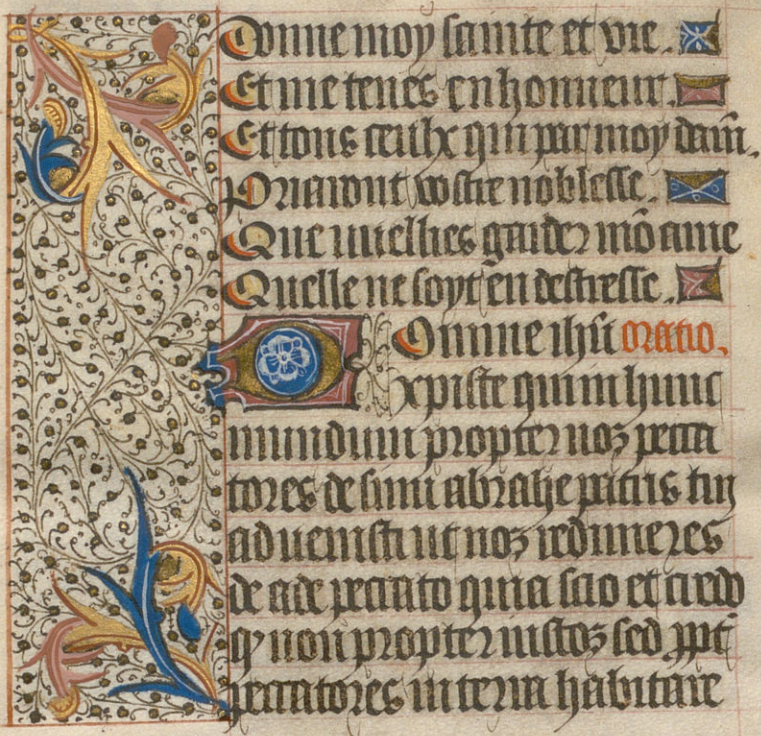 Donne moy sainte et vie.
Et me tenes en honneur.
Et tous ceulx qui par moy dam̄.
Priaront vostre noblesse.
Que vuelhes garder mō ame
Quelle ne soyt en destresse.
Domine ihū oratio.
xpiste qui in hunc
mundum propter nos pecca
tores de sinu abrahe patris tui
advenisti ut nos redimeres
de ade peccato quia scio et credo
qꝫ non propter iustos sed ꝓpt̄
peccatores in terra habitare